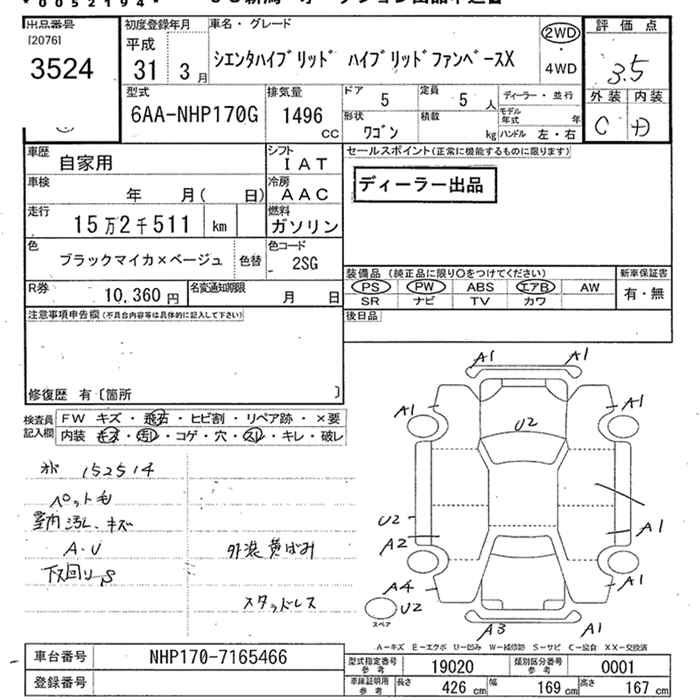 * 0 0 5 2 1 9 4 *
出品番号
[2076]
3524
初度登録年月
平成
31年 3月
車名・グレード
シエンタハイブリッド ハイブリッドファンベースX
2WD
・
4WD
評価点
3.5
外装 内装
C D
型式
6AA-NHP170G
排気量
1496
CC
ドア
5
定員
5人
形状
ワゴン
積載
kg
ディーラー・並行
モデル年式 年
ハンドル 左・右
車歴
自家用
シフト
IAT
車検
年 月( 日)
冷房
AAC
走行
15万2千511 km
燃料
ガソリン
色
ブラックマイカ×ベージュ
色替
色コード
- 2SG
R券
10,360円
名変通知期限
月 日
セールスポイント(正常に機能するものに限ります)
ディーラー出品
装備品(純正品に限り○をつけてください)
PS PW ABS エアB AW
SR ナビ TV カワ
新車保証書
有・無
後日品
注意事項申告欄(不具合内容等は具体的に記入して下さい)
修復歴 有〔箇所 〕
検査員記入欄
FW キズ・飛石・ヒビ割・リペア跡・×要
内装 キズ・汚れ・コゲ・穴・スレ・キレ・破レ
152514
ペット毛
室内汚レ、キズ
A・U
下回りS
外装黄ばみ
スタッドレス
A1 A1
A1 A1
U2
U2
A2
A1
A4
A1
U2
スペア
A3 A1
A-キズ E-エクボ U-凹み W-補修跡 S-サビ C-腐食 XX-交換済
車台番号
NHP170-7165466
登録番号
型式指定番号 参考
19020
類別区分番号 参考
0001
車庫証明用 参考
長さ 426 cm
幅 169 cm
高さ 167 cm